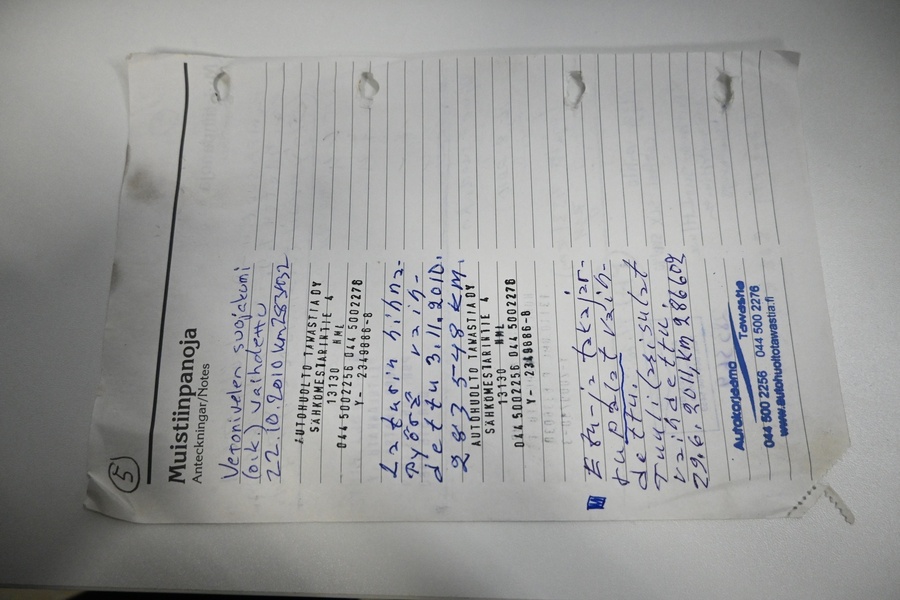 5
Muistiinpanoja
Anteckningar/Notes
Vetonivelen suojakumi
(o.k.) vaihdettu
22.10.2010 km 283032
AUTOHUOLTO TAWASTIA OY
SÄHKÖMESTARINTIE 4
13130 HML
044 5002256 044 5002276
Y- 2349886-8
Laturin hihna-
pyörä vaih-
dettu 3.11.2010.
283548 km.
AUTOHUOLTO TAWASTIA OY
SÄHKÖMESTARINTIE 4
13130 HML
044 5002256 044 5002276
Y- 2349886-8
M Etu- ja takajar-
rupalat vaih-
dettu.
Tuulilasisulat
vaihdettu
29.6.2011, km 286602
Autokorjaamo Tawastia
044 500 2256 044 500 2276
www.autohuoltotawastia.fi